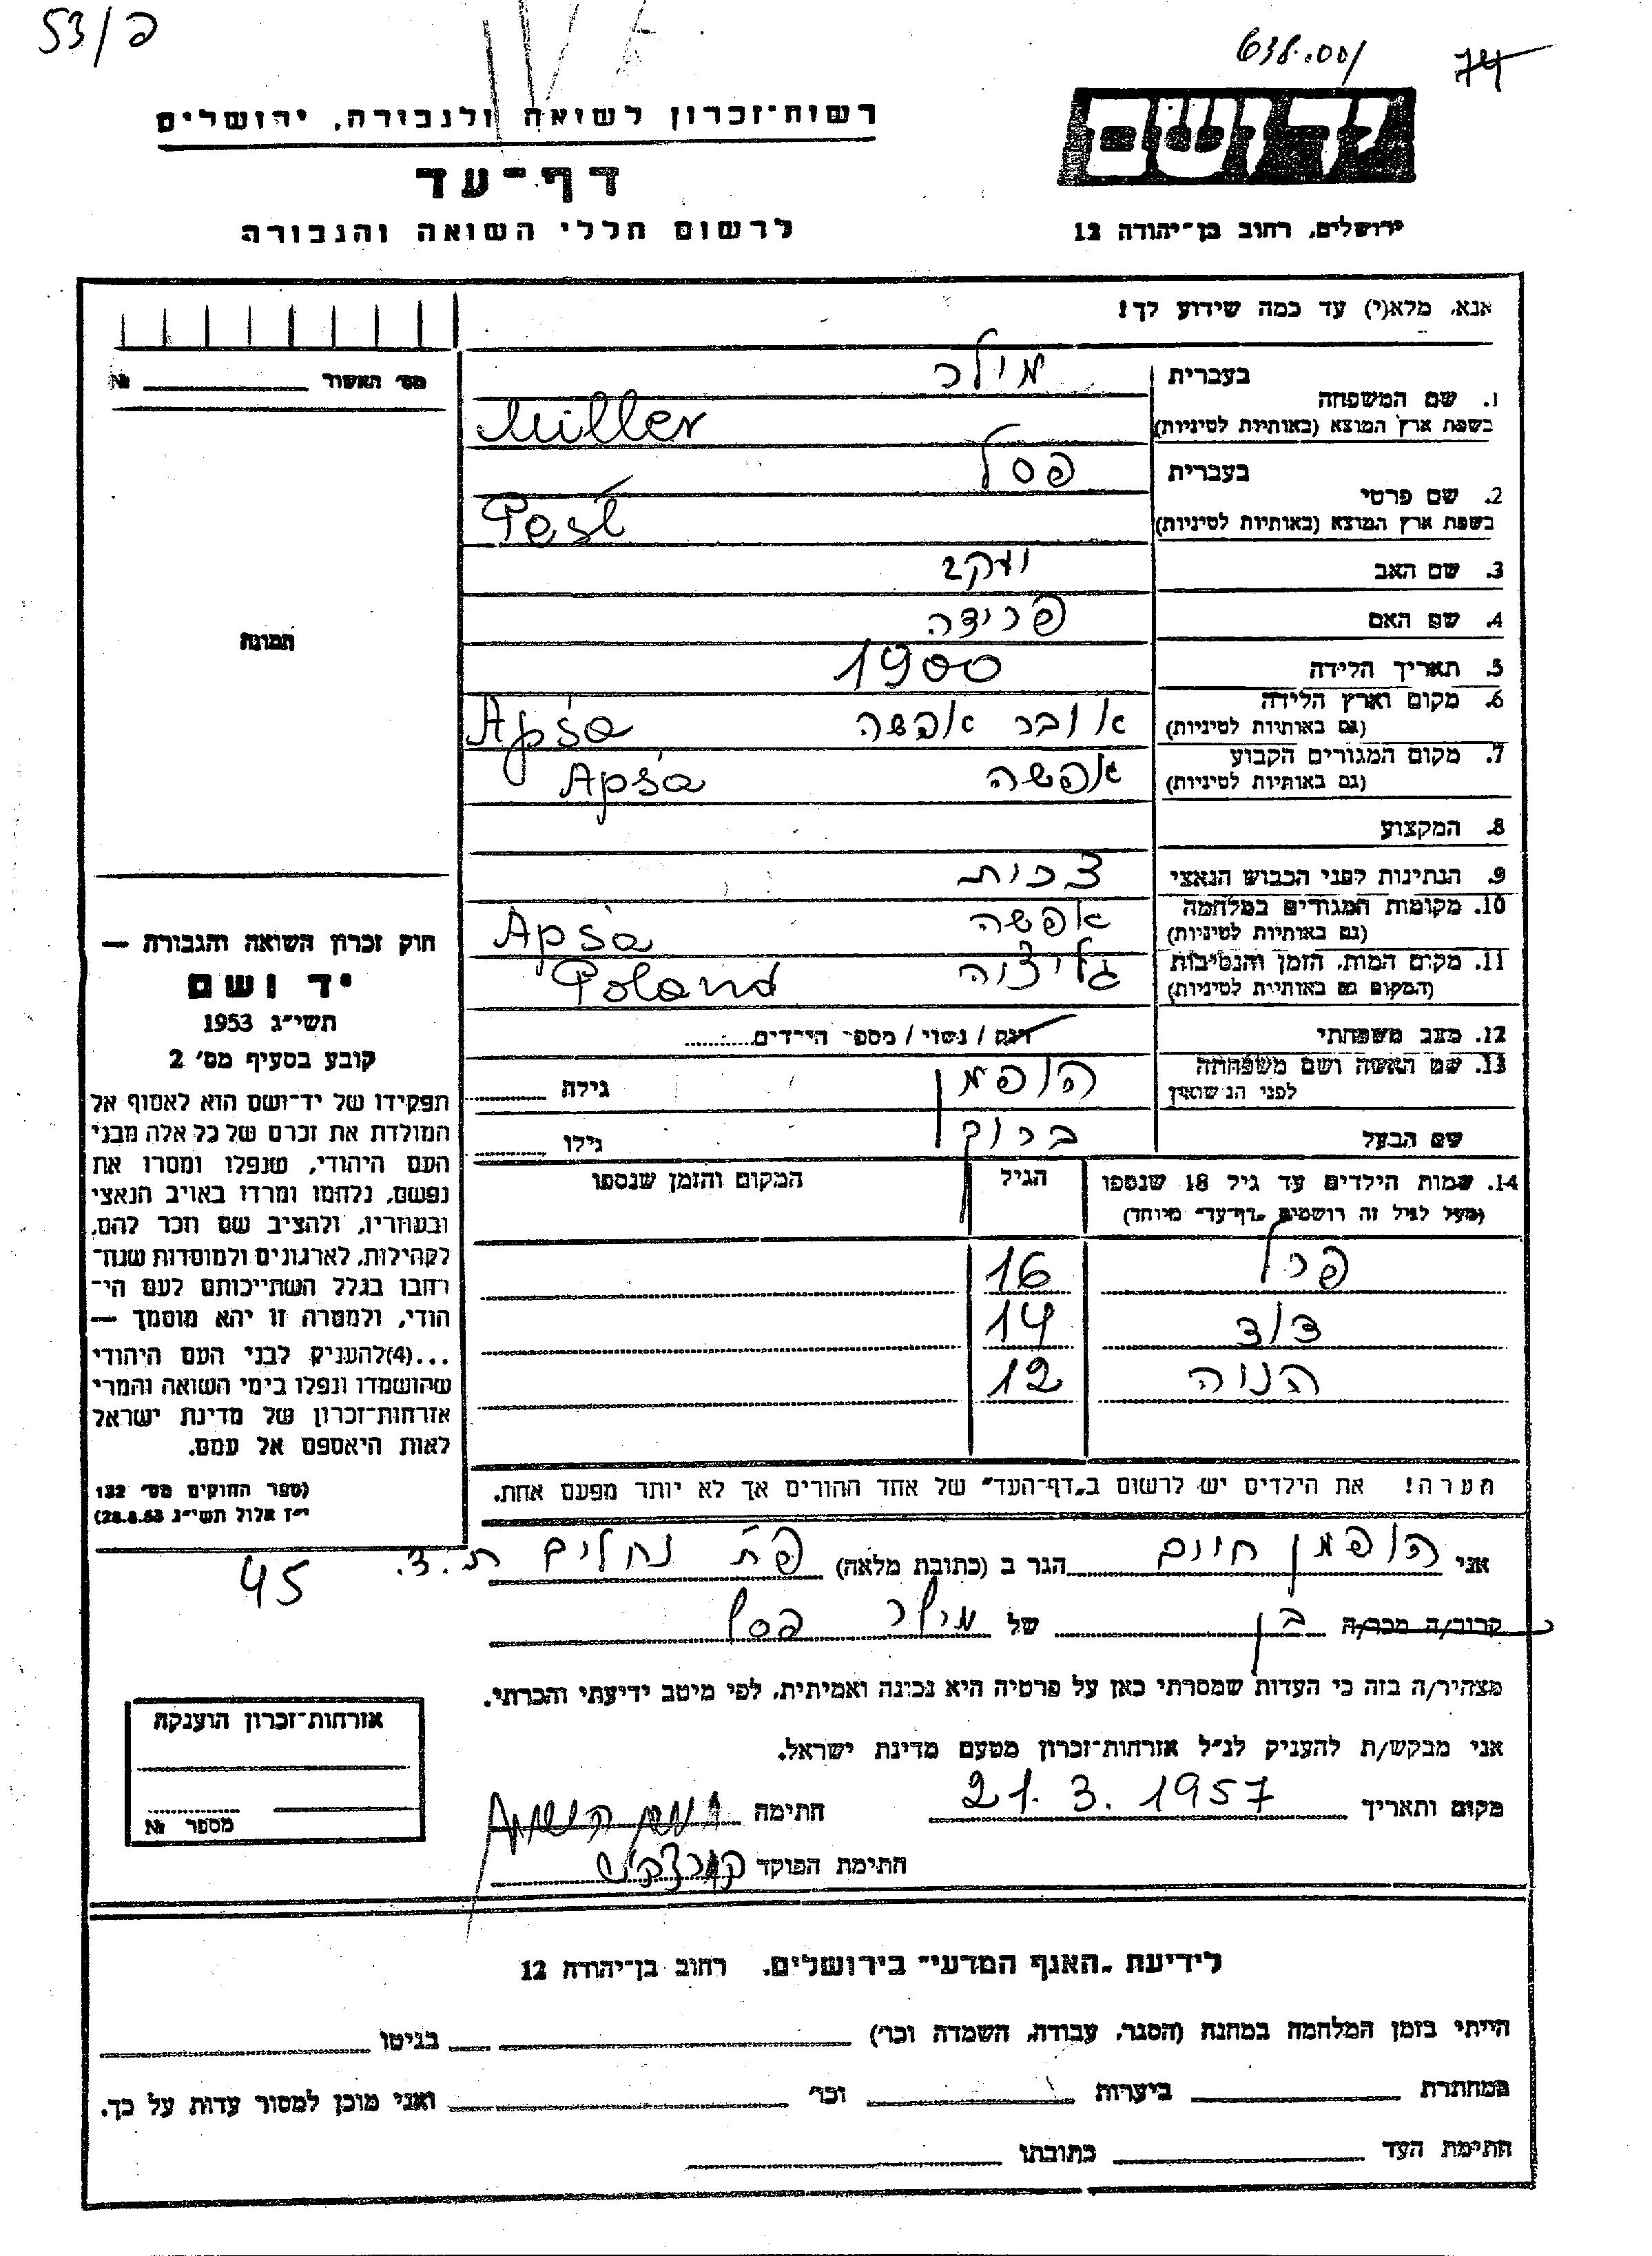 53/פ
638.001
74
יד ושם
ירושלים, רחוב בן־יהודה 12
רשות־זכרון לשואה ולגבורה, ירושלים
דף־עד
לרשום חללי השואה והגבורה
אנא, מלא(י) עד כמה שידוע לך!
מס׳ האשור № 
בעברית מילר
1. שם המשפחה
בשפת ארץ המוצא (באותיות לטיניות) Miller
בעברית פסל
2. שם פרטי
בשפת ארץ המוצא (באותיות לטיניות) Pesl
3. שם האב יעקב
4. שם האם פרידה
תמונה
5. תאריך הלידה 1900
6. מקום וארץ הלידה
(גם באותיות לטיניות) אובר אפשה Apša
7. מקום המגורים הקבוע
(גם באותיות לטיניות) אפשה Apša
8. המקצוע
9. הנתינות לפני הכבוש הנאצי צכית
10. מקומות המגורים במלחמה
(גם באותיות לטיניות) אפשה Apša
11. מקום המות, הזמן והנסיבות
(המקום גם באותיות לטיניות) גליציה Poland
12. מצב משפחתי רווק / נשוי / מספר הילדים
13. שם האשה ושם משפחתה
לפני הנישואין הופמן גילה
שם הבעל ברוך גילו
14. שמות הילדים עד גיל 18 שנספו הגיל המקום והזמן שנספו
(מעל לגיל זה רושמים „דף־עד״ מיוחד)
פרל 16
דוד 14
חנה 12
הערה! את הילדים יש לרשום ב„דף־העד״ של אחד ההורים אך לא יותר מפעם אחת.
חוק זכרון השואה והגבורה —
יד ושם
תשי״ג 1953
קובע בסעיף מס׳ 2
תפקידו של יד־ושם הוא לאסוף אל
המולדת את זכרם של כל אלה מבני
העם היהודי, שנפלו ומסרו את
נפשם, נלחמו ומרדו באויב הנאצי
ובעוזריו, ולהציב שם וזכר להם,
לקהילות, לארגונים ולמוסדות שנח־
רבו בגלל השתייכותם לעם הי־
הודי, ולמטרה זו יהא מוסמך —
...(4)להעניק לבני העם היהודי
שהושמדו ונפלו בימי השואה והמרי
אזרחות־זכרון של מדינת ישראל
לאות היאספם אל עמם.
(ספר החוקים מס׳ 132
י״ז אלול תשי״ג 28.8.53)
45
אני הופמן חיים הגר ב (כתובת מלאה) פ״ת נחלים ת.ד.
קרוב/ה מכר/ה בן של מילר פסל
מצהיר/ה בזה כי העדות שמסרתי כאן על פרטיה היא נכונה ואמיתית, לפי מיטב ידיעתי והכרתי.
אני מבקש/ת להעניק לנ״ל אזרחות־זכרון מטעם מדינת ישראל.
מקום ותאריך 21.3.1957 חתימה
חתימת הפוקד
אזרחות־זכרון הוענקה
מספר №
לידיעת „האגף המדעי״ בירושלים, רחוב בן־יהודה 12
הייתי בזמן המלחמה במחנה (הסגר, עבודה, השמדה וכו׳) בגיטו
במחתרת ביערות וכו׳ ואני מוכן למסור עדות על כך.
חתימת העד כתובתו